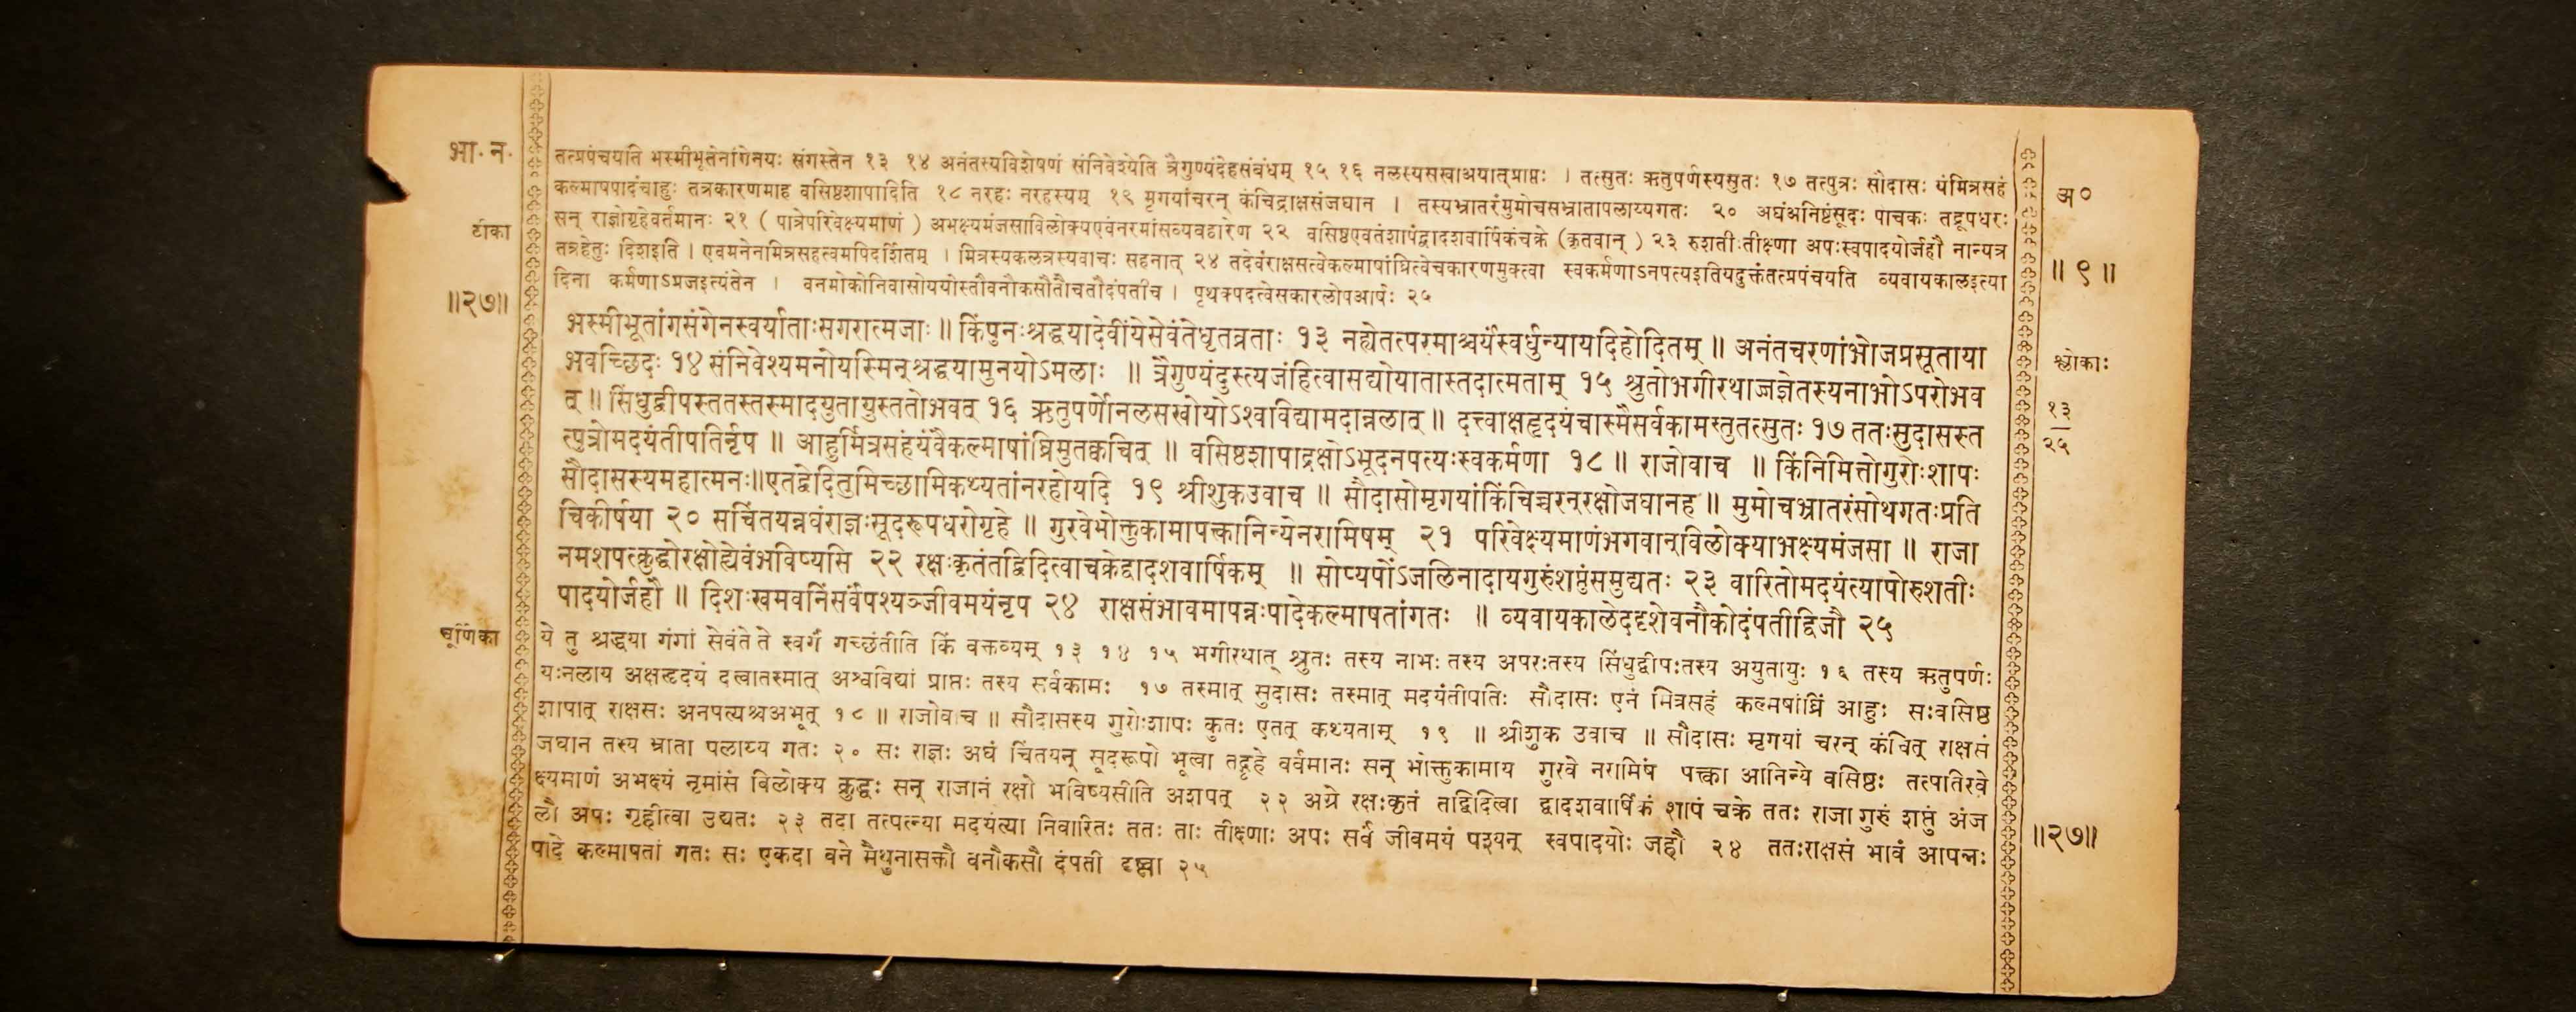 भा. न.
टीका
॥२७॥
तत्प्रपंचयति भस्मीभूतेनांगेनयः संगस्तेन १३ १४ अनंतस्यविशेषणं संनिवेश्येति त्रैगुण्यंदेहसंबंधम् १५ १६ नलस्यसखाअयात्प्राप्तः । तत्सुतः ऋतुपर्णस्यसुतः १७ तत्पुत्रः सौदासः यंमित्रसहं
कल्माषपादंचाहुः तत्रकारणमाह वसिष्ठशापादिति १८ नरहः नरहस्यम् १९ मृगयांचरन् कंचिद्राक्षसंजघान । तस्यभ्रातरंमुमोचसभ्रातापलाय्यगतः २० अघंअनिष्टंसूदः पाचकः तद्रूपधरः
सन् राज्ञोगृहेवर्तमानः २१ ( पात्रेपरिवेक्ष्यमाणं ) अभक्ष्यमंजसाविलोक्यएवंनरमांसव्यवहारेण २२ वसिष्ठएवतंशापंद्वादशवार्षिकंचक्रे (कृतवान् ) २३ रुशतीःतीक्ष्णा अपःस्वपादयोर्जहौ नान्यत्र
तत्रहेतुः दिशइति । एवमनेनामित्रसहत्वमपिदर्शितम् । मित्रस्यकलत्रस्यवाचः सहनात् २४ तदेवंराक्षसत्वेकल्माषांघ्रित्वेचकारणमुक्त्वा स्वकर्मणाऽनपत्यइतियदुक्तंतत्प्रपंचयति व्यवायकालइत्या
दिना कर्मणाऽप्रजइत्यंतेन । वनमोकोनिवासोययोस्तौवनौकसौतौचतौदंपतीच । पृथक्पदत्वेसकारलोपआर्षः २५
भस्मीभूतांगसंगेनस्वर्याताःसगरात्मजाः ॥ किंपुनःश्रद्धयादेवींयेसेवंतेधृतव्रताः १३ नह्येतत्परमाश्चर्यंस्वर्धुन्यायदिहोदितम् ॥ अनंतचरणांभोजप्रसूताया
भवच्छिदः १४ संनिवेश्यमनोयस्मिन्श्रद्धयामुनयोऽमलाः ॥ त्रैगुण्यंदुस्त्यजंहित्वासद्योयातास्तदात्मताम् १५ श्रुतोभगीरथाज्जज्ञेतस्यनाभोऽपरोभव
त् ॥ सिंधुद्वीपस्ततस्तस्मादयुतायुस्ततोभवत् १६ ऋतुपर्णोनलसखोयोऽश्वविद्यामदान्नलात् ॥ दत्त्वाक्षहृदयंचास्मैसर्वकामस्तुतत्सुतः १७ ततःसुदासस्त
त्पुत्रोमदयंतीपतिर्नृप ॥ आहुर्मित्रसहंयंवैकल्माषांघ्रिमुतक्वचित् ॥ वसिष्ठशापाद्रक्षोऽभूदनपत्यःस्वकर्मणा १८ ॥ राजोवाच ॥ किंनिमित्तोगुरोःशापः
सौदासस्यमहात्मनः॥एतद्वेदितुमिच्छामिकथ्यतांनरहोयदि १९ श्रीशुकउवाच ॥ सौदासोमृगयांकिंचिच्चरन्रक्षोजघानह ॥ मुमोचभ्रातरंसोथगतःप्रति
चिकीर्षया २० सचिंतयन्नघंराज्ञःसूदरूपधरोगृहे ॥ गुरवेभोक्तुकामापत्क्तानिन्येनरामिषम् २१ परिवेक्ष्यमाणंभगवान्विलोक्याभक्ष्यमंजसा ॥ राजा
नमशपत्क्रुद्धोरक्षोह्येवंभविष्यसि २२ रक्षःकृतंतद्विदित्वाचक्रेद्वादशवार्षिकम् ॥ सोप्यपोंऽजलिनादायगुरुंशप्तुंसमुद्यतः २३ वारितोमदयंत्यापोरुशतीः
पादयोर्जहौ ॥ दिशःखमवनिंसर्वंपश्यञ्जीवमयंनृप २४ राक्षसंभावमापन्नःपादेकल्माषतांगतः ॥ व्यवायकालेददृशेवनौकोदंपतीद्विजौ २५
चूर्णिका
ये तु श्रद्धया गंगां सेवंते ते स्वर्गं गच्छंतीति किं वक्तव्यम् १३ १४ १५ भगीरथात् श्रुतः तस्य नाभः तस्य अपरःतस्य सिंधुद्वीपःतस्य अयुतायुः १६ तस्य ऋतुपर्णः
यःनलाय अक्षहृदयं दत्वातस्मात् अश्वविद्यां प्राप्तः तस्य सर्वकामः १७ तस्मात् सुदासः तस्मात् मदयंतीपतिः सौदासः एनं मित्रसहं कल्मषांघ्रिं आहुः सःवसिष्ठ
शापात् राक्षसः अनपत्यश्चअभूत् १८ ॥ राजोवाच ॥ सौदासस्य गुरोःशापः कुतः एतत् कथ्यताम् १९ ॥ श्रीशुक उवाच ॥ सौदासः मृगयां चरन् कंचित् राक्षसं
जघान तस्य भ्राता पलाय्य गतः २० सः राज्ञः अघं चिंतयन् सूदरूपो भूत्वा तद्गृहे वर्वमानः सन् भोक्तुकामाय गुरवे नरामिषं पत्क्ता आनिन्ये वसिष्ठः तत्पतिरवे
क्ष्यमाणं अभक्ष्यं नृमांसं विलोक्य क्रुद्धः सन् राजानं रक्षो भविष्यसीति अशपत् २२ अग्रे रक्षःकृतं तद्विदित्वा द्वादशवार्षिकं शापं चक्रे ततः राजा गुरुं शप्तुं अंज
लौ अपः गृहीत्वा उद्यतः २३ तदा तत्पत्न्या मदयंत्या निवारितः ततः ताः तीक्ष्णाः अपः सर्वं जीवमयं पश्यन् स्वपादयोः जहौ २४ ततःराक्षसं भावं आपन्नः
पादे कल्माषतां गतः सः एकदा वने मैथुनासक्तौ वनौकसौ दंपती दृष्ट्वा २५
अ०
॥ ९ ॥
श्लोकाः
१३
२५
॥२७॥